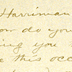 Harriman
ow do you
ing you
this occ